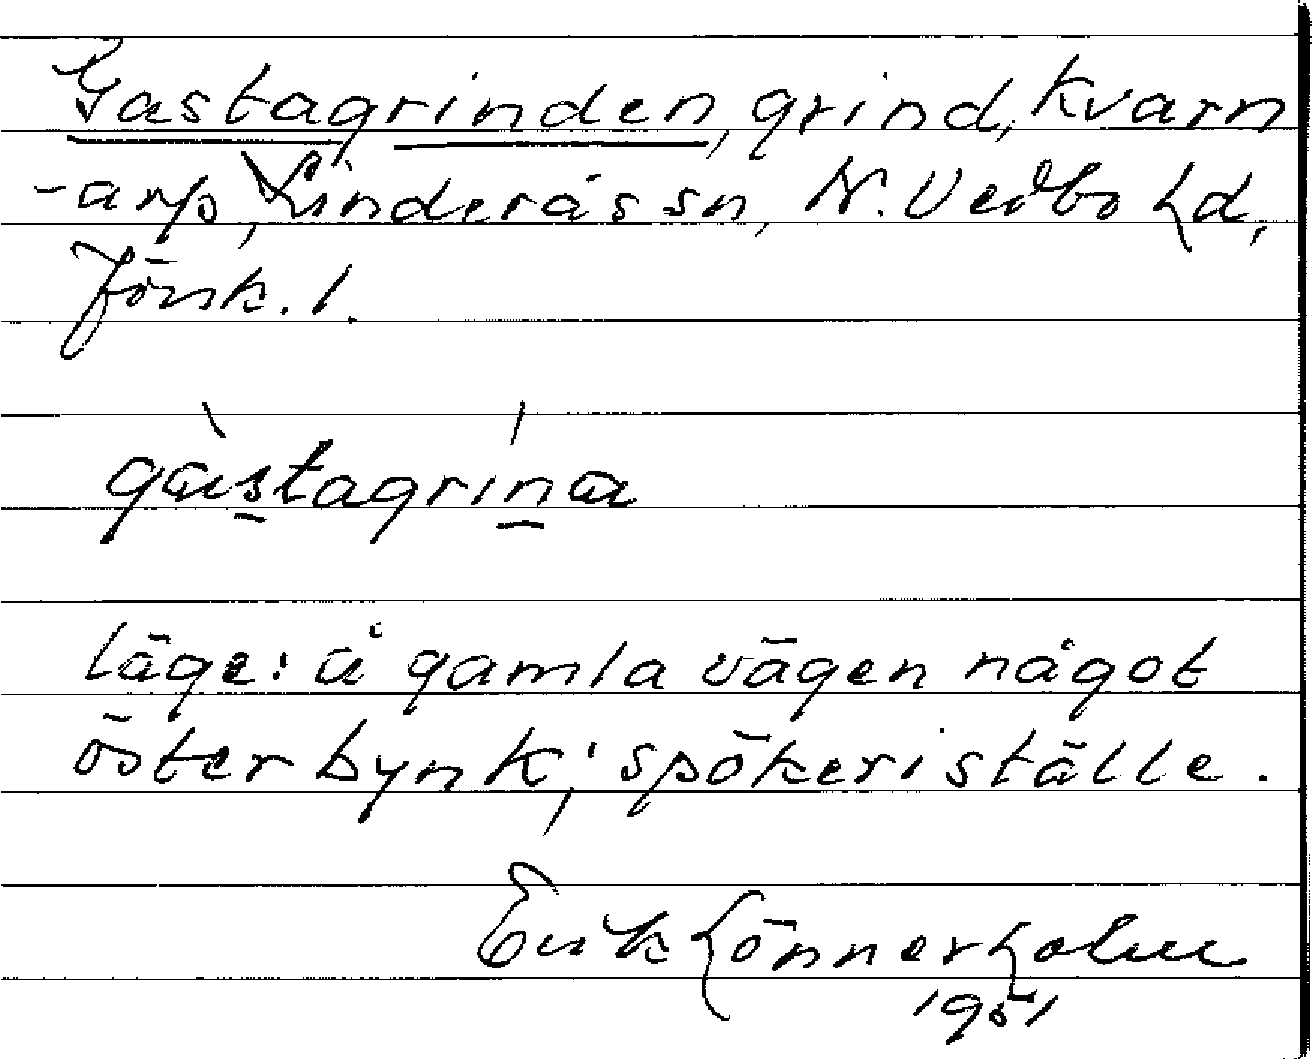 Gastagrinden, grind, Kvarn
-arp, Linderås sn, N. Vedbo hd,
Jönk. l.
gàstagrína
läge: å gamla vägen något
öster bynk; spökeriställe.
Erik Lönnerholm
1951